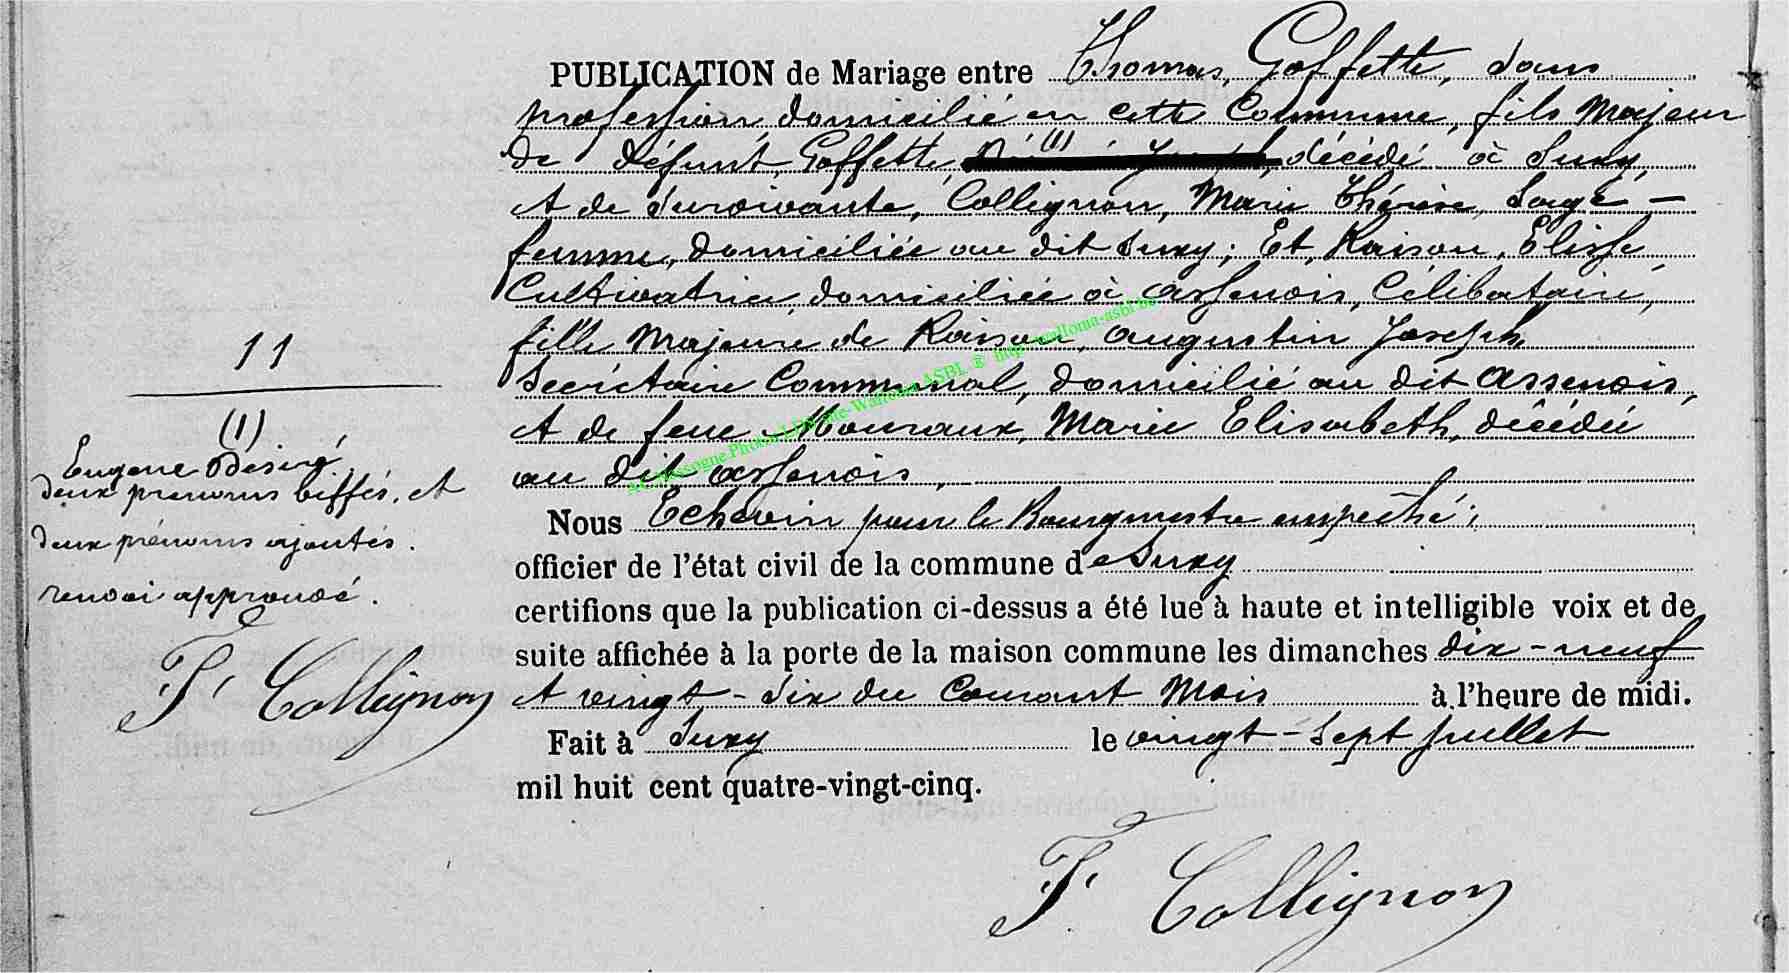 PUBLICATION de Mariage entre Thomas, Goffette, sans
profession, domicilié en cette Commune, fils Majeur
de défunt, Goffette, (1) décédé à Suxy,
et de survivante, Collignon, Marie Thérèse, Sage-
femme, domiciliée au dit Suxy; Et, Raison, Elisse
Cultivatrice, domiciliée à assenois, Célibataire,
fille Majeure de Raison, augustin Joseph,
Secrétaire Communal, domicilié au dit assenois,
et de feue Mouraux, Marie Elisabeth, décédée
au dit assenois,
Nous Echevin pour le Bourgmestre empêché;
officier de l'état civil de la commune de Suxy
certifions que la publication ci-dessus a été lue à haute et intelligible voix et de
suite affichée à la porte de la maison commune les dimanches dix-neuf
et vingt-six du Courant Mois à l'heure de midi.
Fait à Suxy le vingt-sept juillet
mil huit cent quatre-vingt-cinq.
F. Collignon
11
(1)
Eugene Désiré,
deux prénoms biffés, et
deux prénoms ajoutés.
renvoi approuvé.
F. Collignon